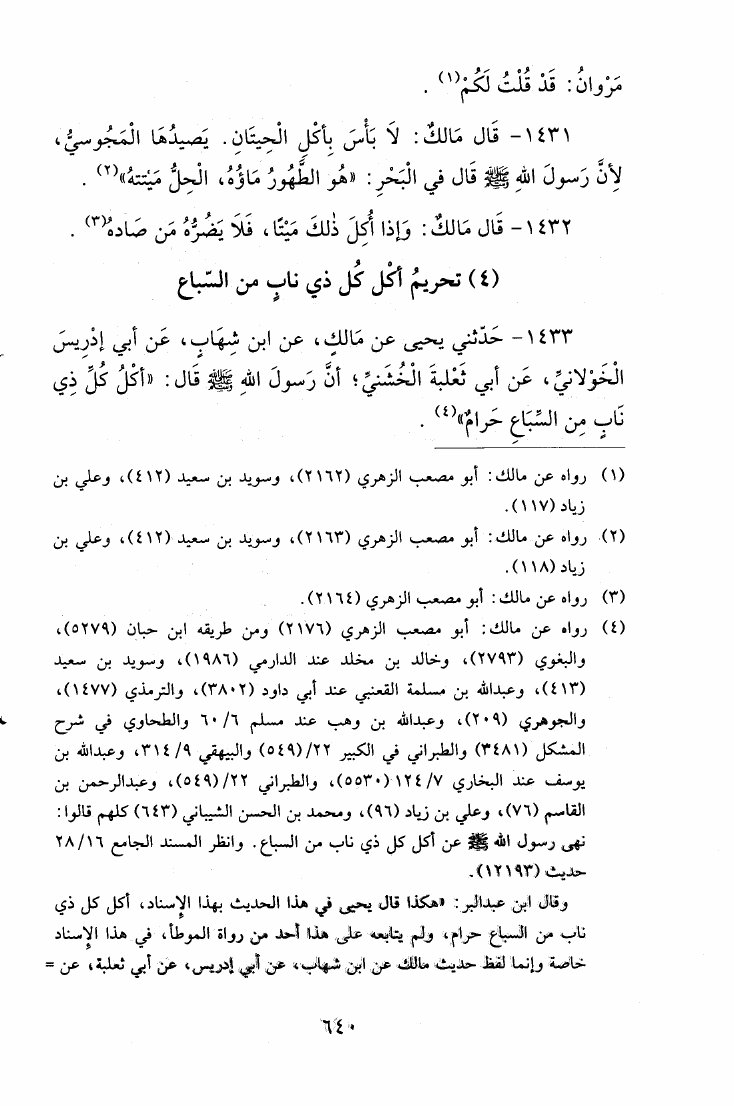 مَرْوانُ: قَدْ قُلْتُ لَكُمْ(١) .
١٤٣١- قَال مَالكٌ: لاَ بَأْسَ بِأكْلِ الْحِيتَانِ. يَصيدُهَا الْمَجُوسيُّ،
لِأنَّ رَسولَ اللهِ ﷺ قَال في الْبَحْرِ: «هُو الطَّهُورُ مَاؤُهُ، الْحِلُّ مَيْتتهُ»(٢) .
١٤٣٢- قَال مَالكٌ: وَإذا أُكِلَ ذٰلكَ مَيْتًا، فَلَا يَضُرُّهُ مَن صَادهُ(٣) .
(٤) تحريمُ أكْل كُل ذي نابٍ من السّباع
١٤٣٣- حَدّثني يحيى عن مَالكٍ، عن ابن شِهَابٍ، عَن أبي إدْرِيسَ
الْخَوْلانيِّ، عَن أبي ثَعْلبةَ الْخُشَنيِّ؛ أنَّ رَسولَ اللهِ ﷺ قَال: «أكْلُ كُلِّ ذِي
نَابٍ مِن السِّبَاعِ حَرامٌ»(٤) .
(١) رواه عن مالك: أبو مصعب الزهري (٢١٦٢)، وسويد بن سعيد (٤١٢)، وعلي بن
زياد (١١٧).
(٢) رواه عن مالك: أبو مصعب الزهري (٢١٦٣)، وسويد بن سعيد (٤١٢)، وعلي بن
زياد (١١٨).
(٣) رواه عن مالك: أبو مصعب الزهري (٢١٦٤).
(٤) رواه عن مالك: أبو مصعب الزهري (٢١٧٦) ومن طريقه ابن حبان (٥٢٧٩)،
والبغوي (٢٧٩٣)، وخالد بن مخلد عند الدارمي (١٩٨٦)، وسويد بن سعيد
(٤١٣)، وعبدالله بن مسلمة القعنبي عند أبي داود (٣٨٠٢)، والترمذي (١٤٧٧)،
والجوهري (٢٠٩)، وعبدالله بن وهب عند مسلم ٦/ ٦٠ والطحاوي في شرح
المشكل (٣٤٨١) والطبراني في الكبير ٢٢/ (٥٤٩) والبيهقي ٩/ ٣١٤، وعبدالله بن
يوسف عند البخاري ٧/ ١٢٤ (٥٥٣٠)، والطبراني ٢٢/ (٥٤٩)، وعبدالرحمن بن
القاسم (٧٦)، وعلي بن زياد (٩٦)، ومحمد بن الحسن الشيباني (٦٤٣) كلهم قالوا:
نهى رسول الله ﷺ عن أكل كل ذي ناب من السباع. وانظر المسند الجامع ١٦/ ٢٨
حديث (١٢١٩٣).
وقال ابن عبدالبر: «هكذا قال يحيى في هذا الحديث بهذا الإسناد، أكل كل ذي
ناب من السباع حرام، ولم يتابعه على هذا أحد من رواة الموطأ، في هذا الإسناد
خاصة وإنما لفظ حديث مالك عن ابن شهاب، عن أبي إدريس، عن أبي ثعلبة، عن =
٦٤٠